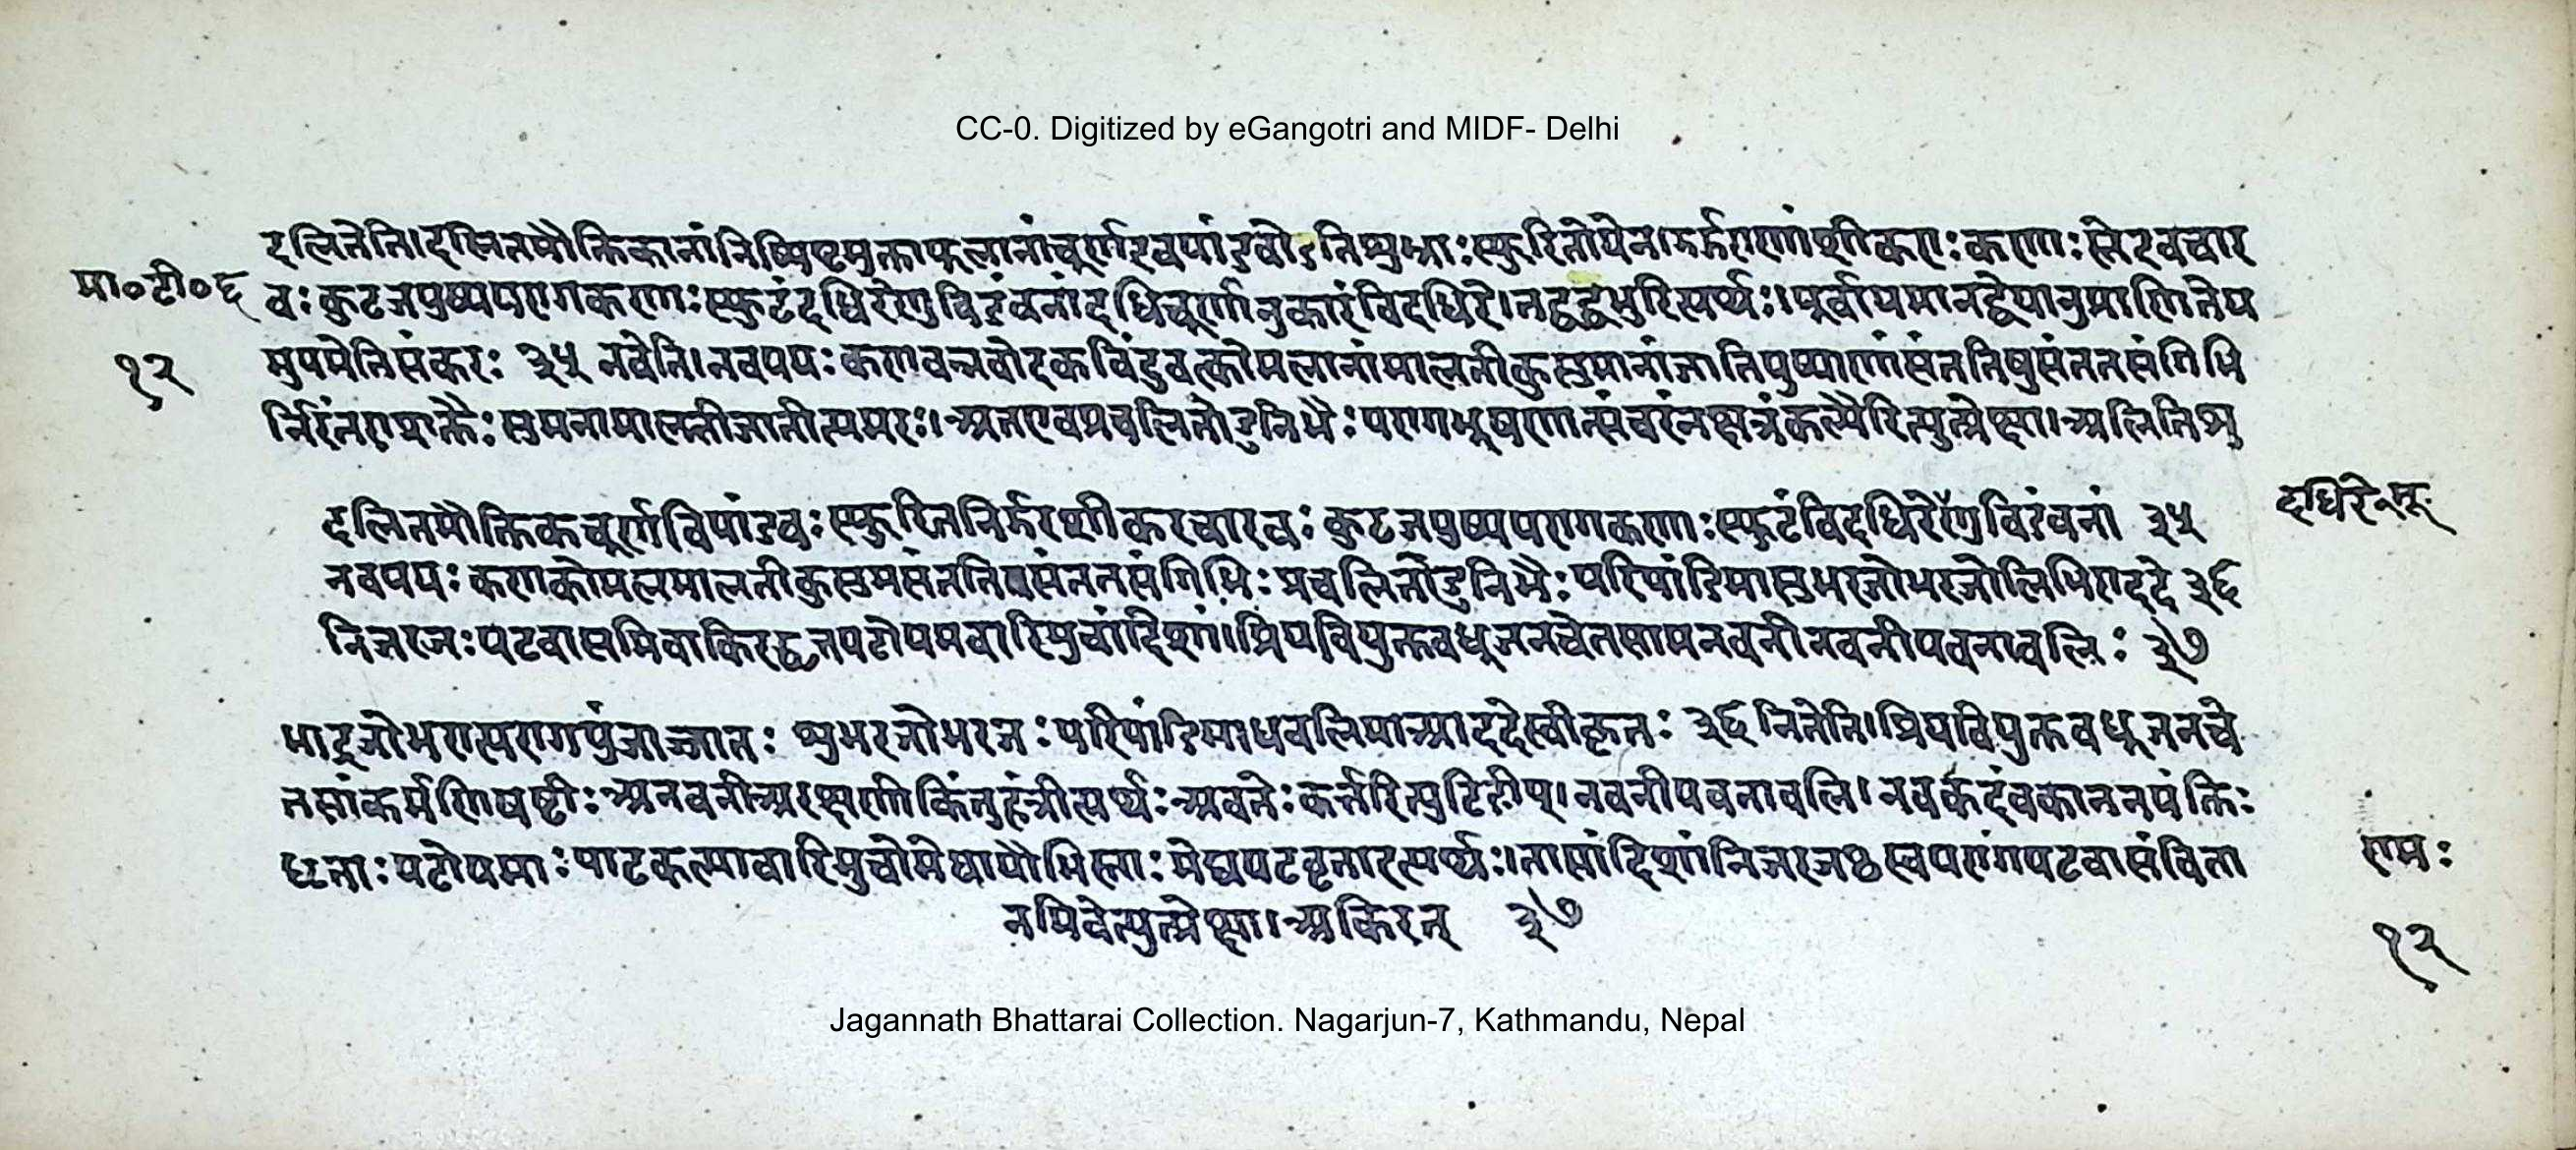 CC-0. Digitized by eGangotri and MIDF- Delhi
दलितेति।दलितमौक्तिकानांनिष्पिष्टमुक्ताफलानांचूर्णइवपांडवोऽतिशुभ्राः स्फुरितोयेनिर्झराणांशीकराः कणाः स्तेइवचार
मा०टी०६
वः कुटजपुष्पपरागकणाः स्फुटंदधिरेरेणुविडंवनांदधिचूर्णानुकारंविदधिरे।तद्वद्वभुरित्यर्थः।पूर्वोपमानद्वयानुप्राणितेय
१२
मुपमेतिसंकरः ३५ नवेति।नवपयः कणवन्नवोदकविंदुवत्कोमलानांमालतीकुसुमानांजातिपुष्पाणांसंततिषुसंततसंगिभि
र्निरंतरासक्तैः सुमनामालतीजातीत्यमरः।अतएवप्रचलितोडुनिभैः परागभूषणात्संचरंनक्षत्रकल्पैरित्युत्प्रेक्षा।अलिनिशु
दलितमौक्तिकचूर्णविपांडवः स्फुरितनिर्झरशीकरचारवः कुटजपुष्पपरागकणाः स्फुटंविदधिरेरेणुविडंवनां ३५
दधिरे
नवपयः कणकोमलमालतीकुसुमसंततिसंततसंगिभिः प्रचलितोडुनिभैः परिपांडिमाशुभरजोभरजोलिभिराददे ३६
निजरजः पटवासमिवाकिरद्धृतपटोपमवारिमुचांदिशां।प्रियवियुक्तवधूजनचेतसामनवनीनवनीपवनावलिः ३७
माद्रजोभरात्परागपुंजाज्जातः शुभरजोभरजः परिपांडिमाधवलिमाआददेस्वीकृतः ३६ निजेति।प्रियवियुक्तवधूजनचे
तसांकर्मणिषष्टीः अनवनीअरक्षणीकिंतुहंत्रीत्यर्थः अवतेः कर्त्तरिल्युटिङीप्।नवनीपवनावलि।नवकदंवकाननपंक्तिः
धृताः पटोपमाः पाटकल्पावारिमुचोमेघायाभिस्ताः मेघपटवृताइत्यर्थः।तासांदिशांनिजरजः स्वपरागंपटवासंविता
रामः
नमिवेत्युत्प्रेक्षा।अकिरत् ३७
१२
Jagannath Bhattarai Collection. Nagarjun-7, Kathmandu, Nepal